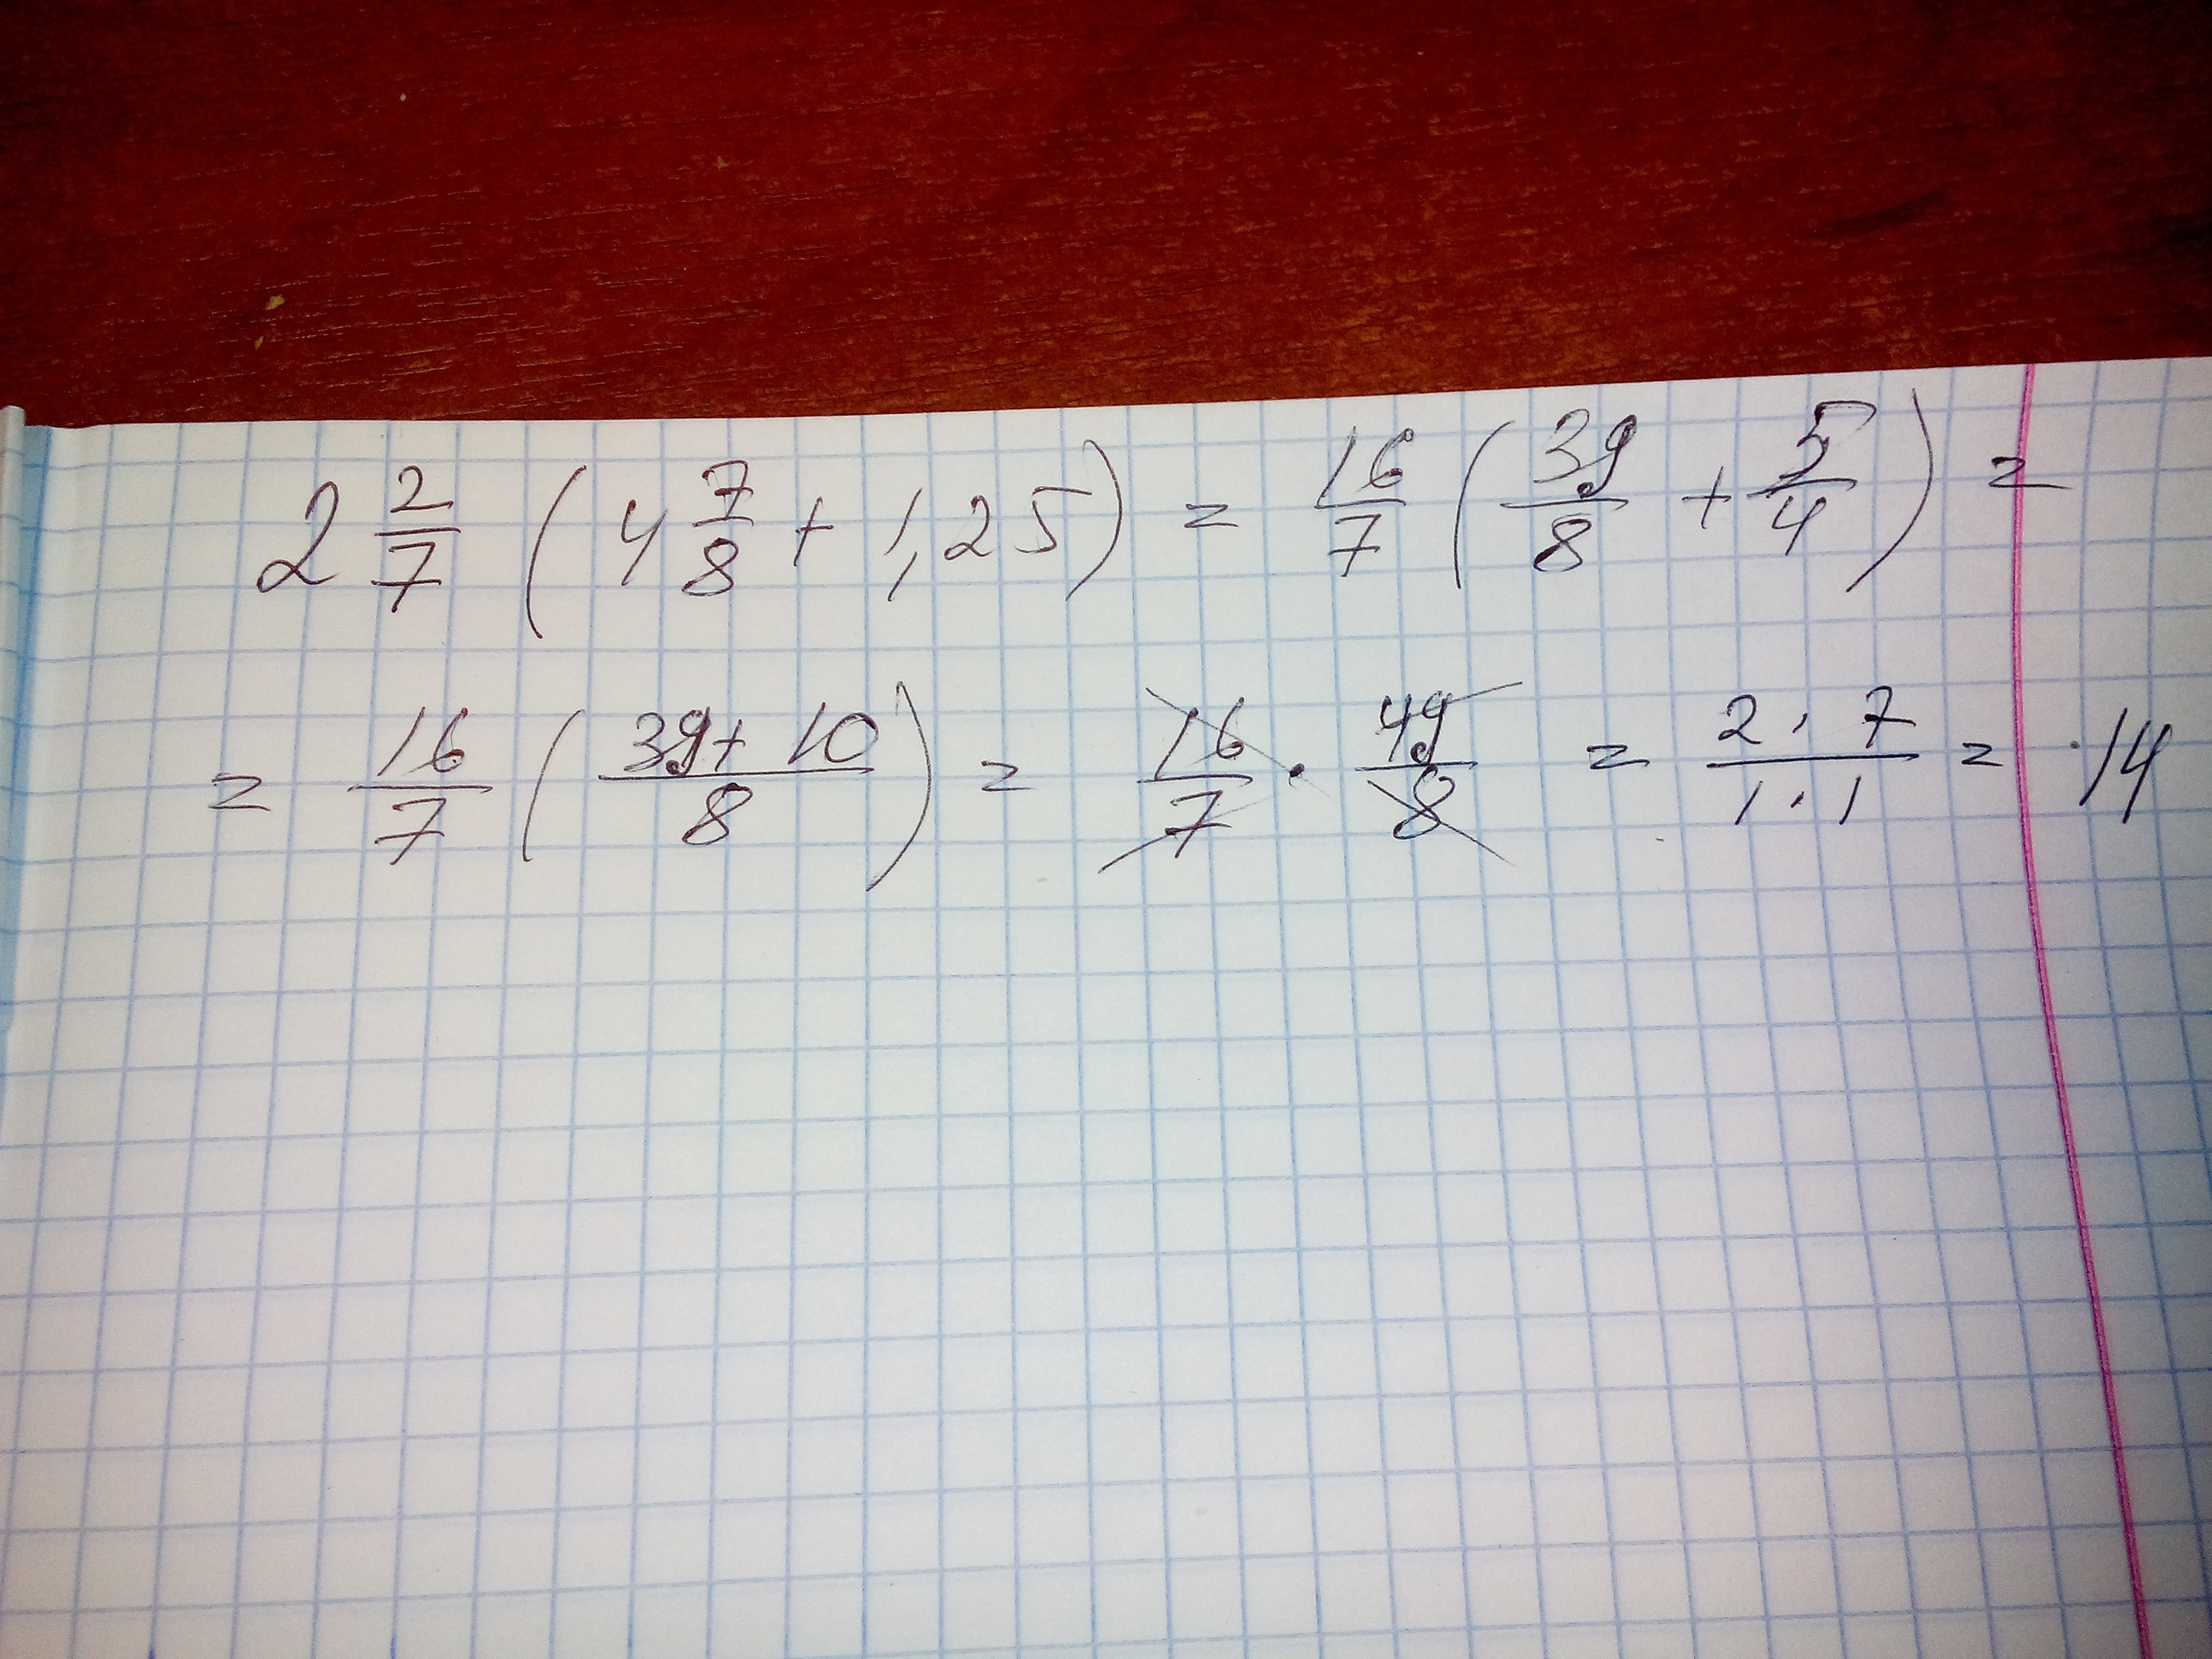 2 2/7 ( 4 7/8 + 1,25 ) = 16/7 ( 39/8 + 5/4 ) =
= 16/7 ( 39 + 10 / 8 ) = 16/7 · 49/8 = 2 · 7 / 1 · 1 = 14